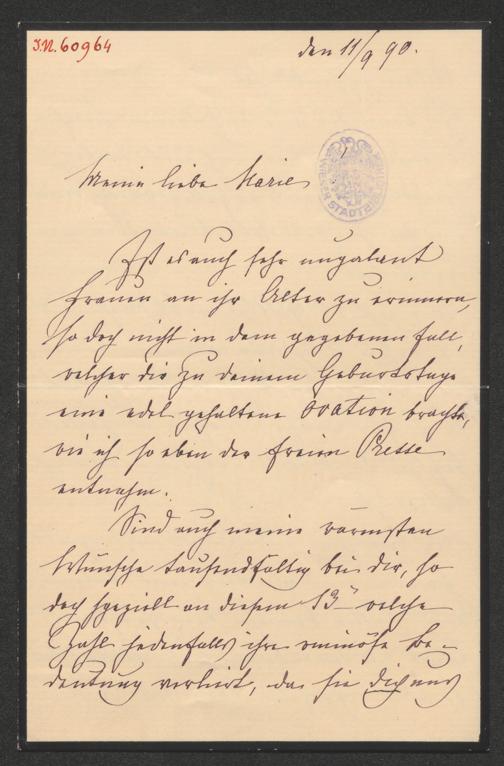 I.N. 60964
den 11/9 90.
WIENER STADTBIBLIOTHEK
Meine liebe Marie
Ist es auch sehr ungalant
Frauen an ihr Alter zu erinnern,
so doch nicht in dem gegebenen Fall,
welcher dir zu deinem Geburtstage
eine edel gehaltene Ovation brachte,
wie ich so eben der freien Presse
entnahm.
Sind auch meine wärmsten
Wünsche tausendfältig bei dir, so
doch speziell an diesem 13 welche
Zahl jedenfalls ihre ominöse Be-
deutung verliert, da sie dich uns